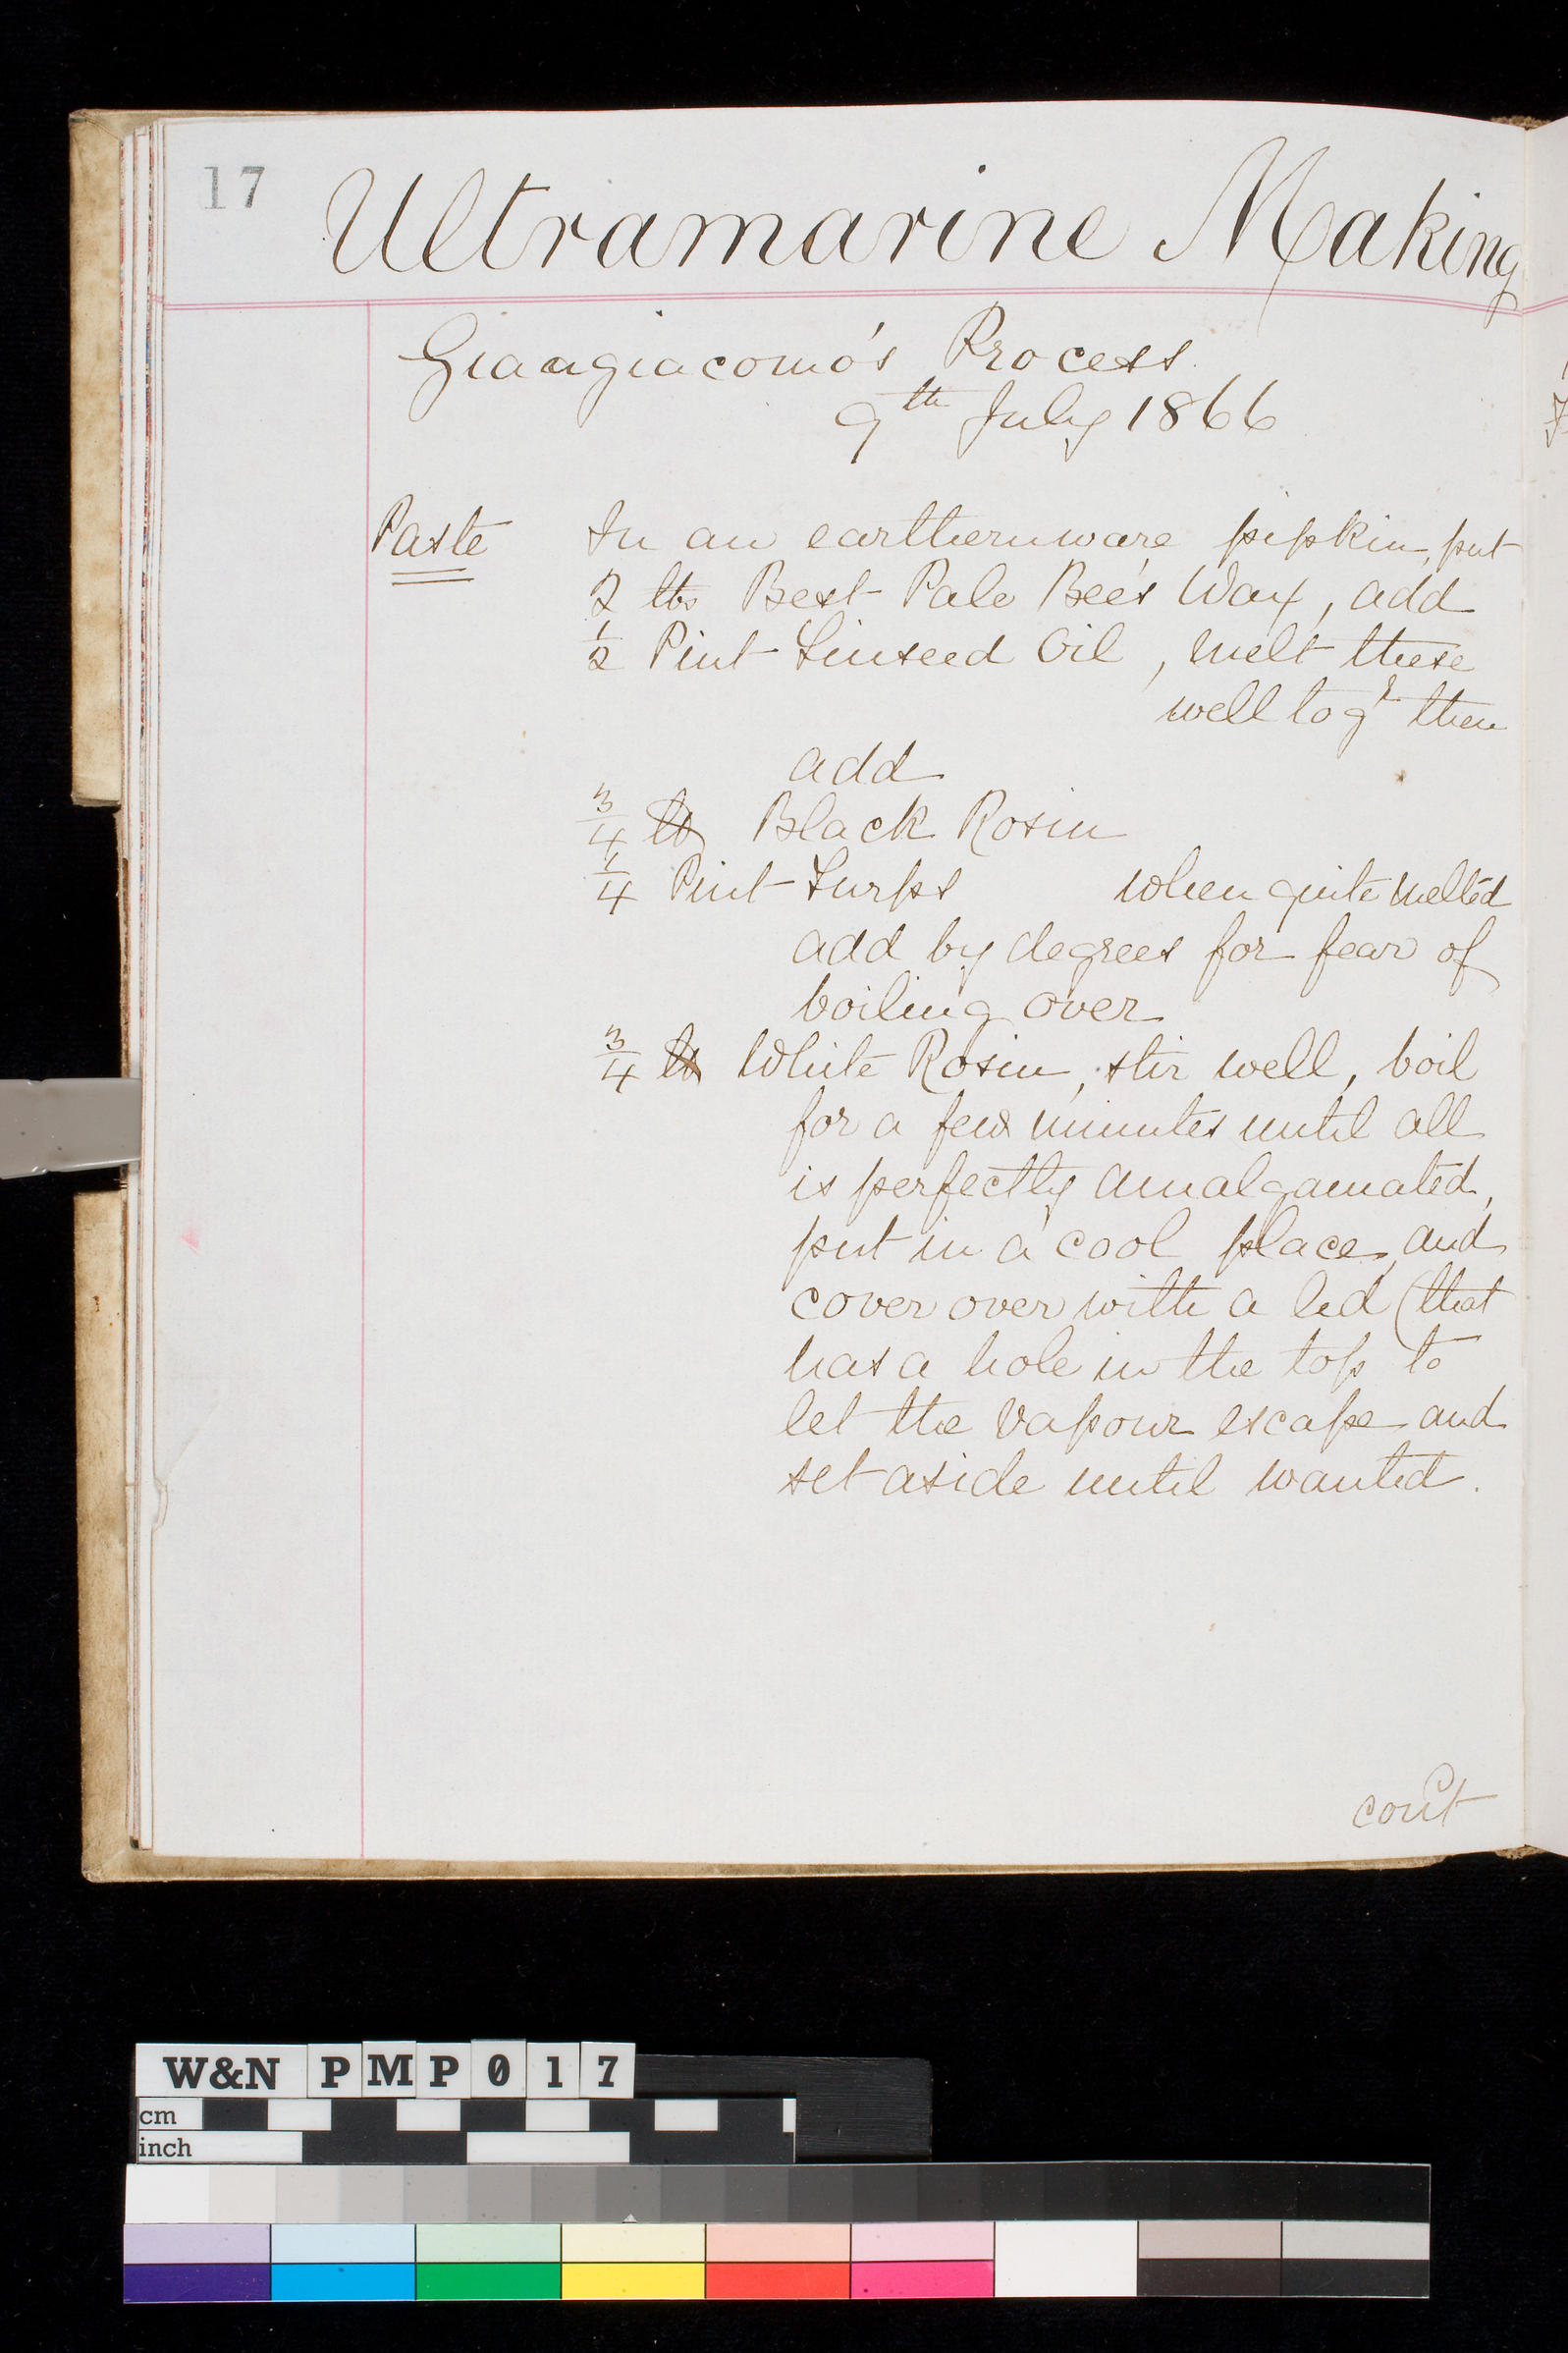 17 Ultramarine Making
Giangiacomo's Process.
9th July 1866
Paste In an earthernware pipkin, put
2 lbs Best Pale Bee's Wax, add
1/2 Pint Linseed Oil, melt these
well togr then
add
3/4 lb Black Rosin
1/4 Pint Turps when quite melted
add by degrees for fear of
boiling over
3/4 lb White Rosin, stir well, boil
for a few minutes until all
is perfectly amalgamated,
put in a cool place, and
cover over with a lid (that
has a hole in the top to
let the vapour escape and
set aside until wanted.
cont
W&N PMP017
cm
inch